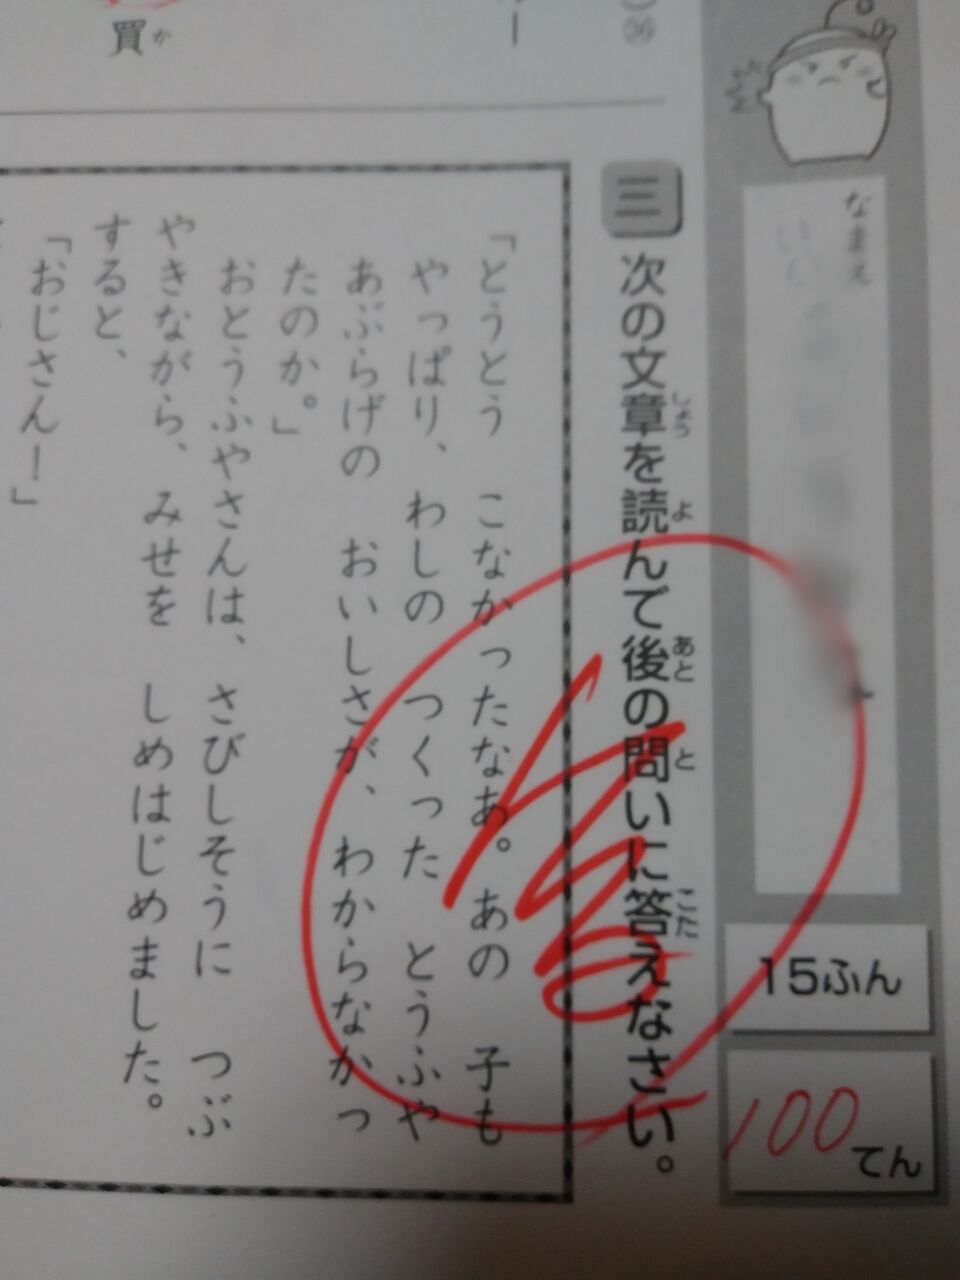 なまえ
15ふん
100てん
三 次の文章を読んで後の問いに答えなさい。
しょう
よ
あと
と
こた
「とうとう こなかったなあ。あの 子も
やっぱり、わしの つくった とうふや
あぶらげの おいしさが、わからなかっ
たのか。」
おとうふやさんは、さびしそうに つぶ
やきながら、みせを しめはじめました。
すると、
「おじさん！」
買
か